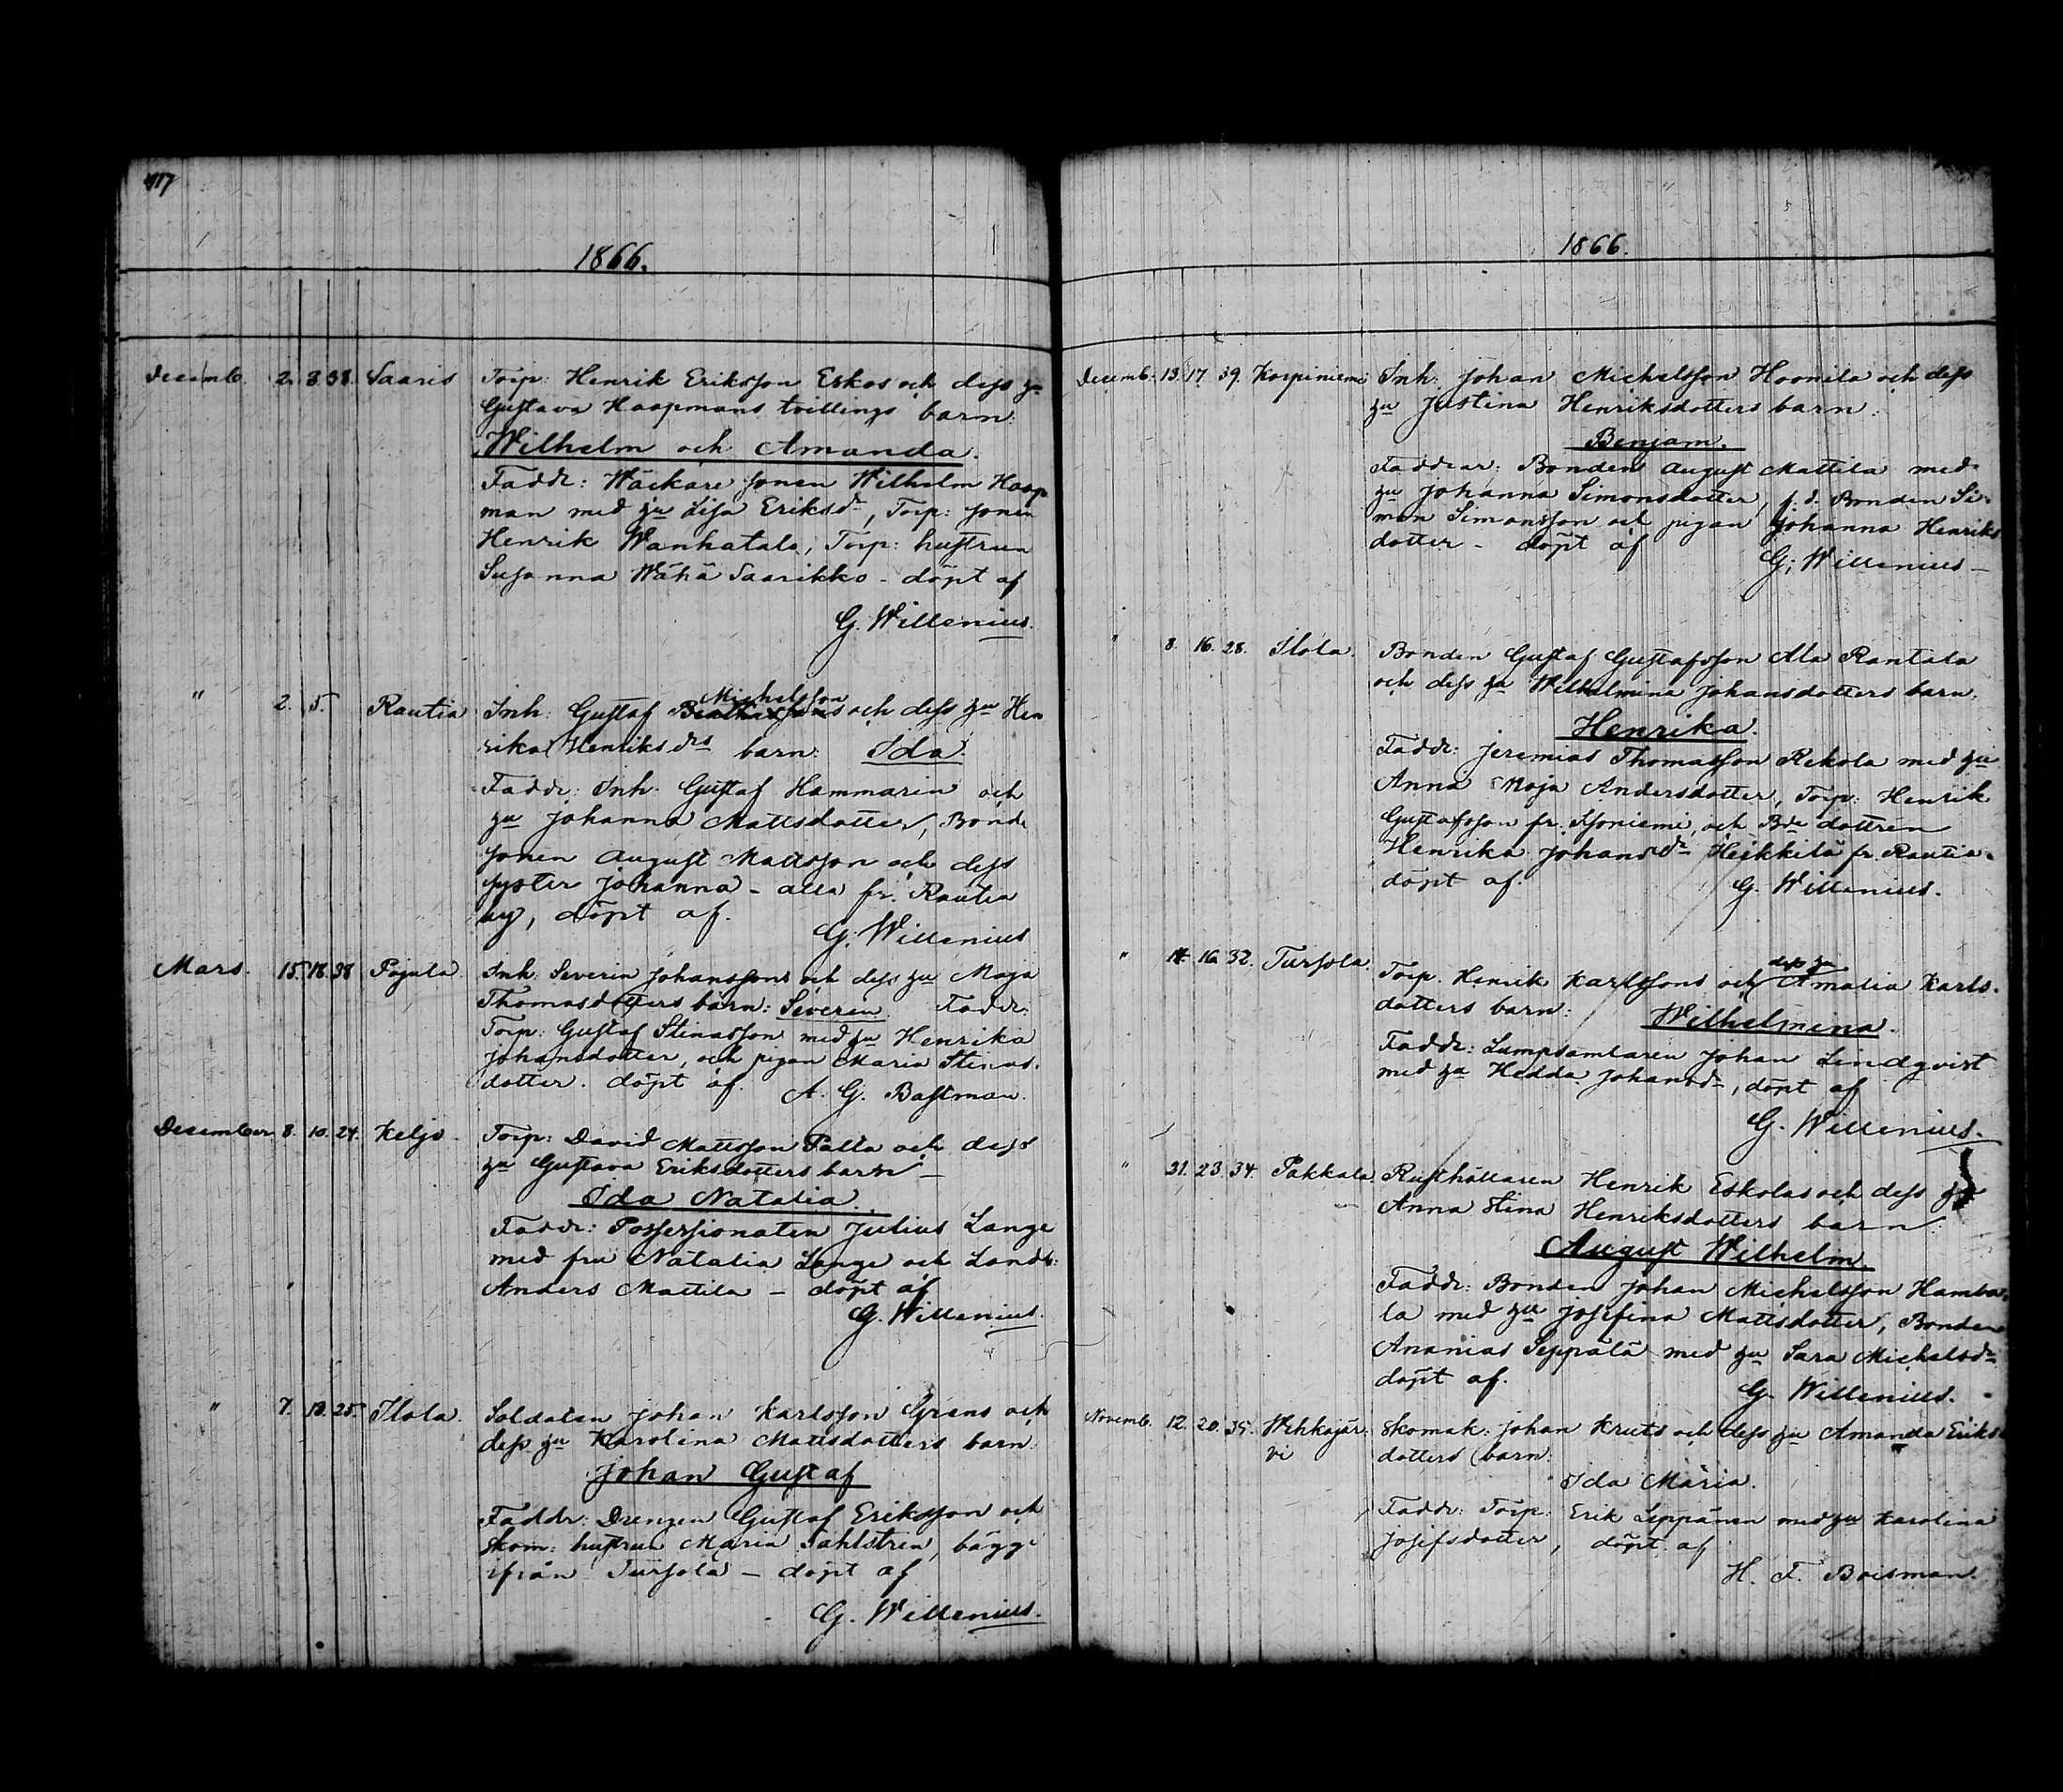 417
1866.
Decemb. 2. 3. 38. Saaris Torp: Henrik Eriksson Eskos och dess hu
Gustava Haapmans tvillings barn:
Wilhelm och Amanda.
Faddr: Wäckare sonen Wilhelm Haap
man med hu Lisa Eriksdr, Torp: sonen
Henrik Wanhatalo, Torp: hustrun
Susanna Wähä Saarikko - döpt af
G. Willenius.
" 2. 5. Rautia Inh: Gustaf Michelsson och dess hu Hen
rika Henriksdrs barn: Ida
Faddr: Inh. Gustaf Hammarin och
hu Johanna Mattsdotter, Bonde
sonen August Mattsson och dess
syster Johanna - alla fr. Rautia
by, döpt af.
G. Willenius
Mars. 15. 18. 38 Pajula. Inh. Severin Johanssons och dess hu Maja
Thomasdotters barn: Severin. Faddr:
Torp: Gustaf Stinasson med hu Henrika
Johansdotter, och pigan Maria Stinas-
dotter. döpt af. A. G. Bastman.
December 8. 10. 24. Keljo - Torp: David Mattsson Palla och dess
hu Gustava Eriksdotters barn -
Ida Natalia.
Faddr: Possessionaten Julius Lange
med fru Natalia Lange och Landb:
Anders Mattila - döpt af
G. Willenius.
" 7. 13. 25. Ilola. Soldaten Johan Karlsson Grens och
dess hu Karolina Mattsdotters barn:
Johan Gustaf
Faddr: Drengen Gustaf Eriksson och
Skom: hustrun Maria Dahlstren, bägge
ifrån Tursola - döpt af
G. Willenius.
1866.
Decemb. 13. 17. 39. Korpiniemi Inh: Johan Michelsson Hoonila och dess
hu Justina Henriksdotters barn:
Benjam.
Faddrar: Bonden August Mattila med
hu Johanna Simonsdotter, f. d. Bonden Si-
mon Simonsson och pigan Johanna Henriks
dotter - döpt af
G. Willenius -
" 8. 16. 28. Ilola. Bonden Gustaf Gustafsson Ala Rantala
och dess hu Wilhelmina Johansdotters barn.
Henrika.
Faddr: Jeremias Thomasson Rekola med hu
Anna Maja Andersdotter, Torp: Henrik
Gustafsson fr. Isoniemi, och Bde dottren
Henrika Johansdr Heikkilä fr. Rautia.
döpt af. G. Willenius.
" 14. 16. 32. Tursola. Torp. Henrik Karlssons och dess hu Amalia Karls-
dotters barn: Wilhelmina.
Faddr: Lumpsamlaren Johan Lindqvist
med hu Hedda Johansdr, döpt af
G. Willenius.
" 21. 23. 34. Pakkala. Rusthållaren Henrik Eskolas och dess hu
Anna Stina Henriksdotters barn
August Wilhelm.
Faddr: Bonden Johan Michelsson Hamba-
la med hu Josefina Mattsdotter, Bonden
Ananias Seppälä med hu Sara Michelsdr
döpt af.
G. Willenius.
Novemb. 12. 20. 35. Wehkajär- Skomak: Johan Kruts och dess hu Amanda Eriks
vi dotters barn:
Ida Maria.
Faddr: Torp: Erik Leppänen med hu Karolina
Josefsdotter, döpt af
H. F. Boisman.